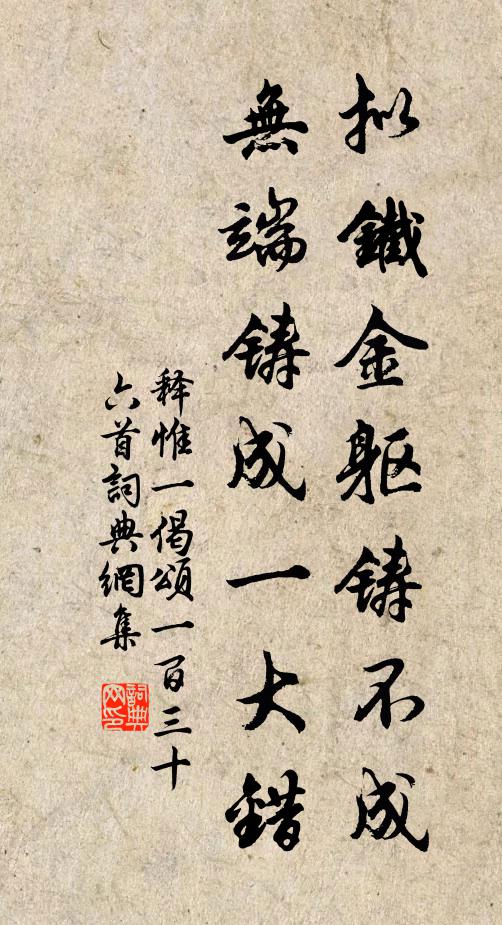 拟鐵金躯铸不成
無端铸成一大錯
释惟一偈頌一百三十
六首詞典網集
詞典
网印